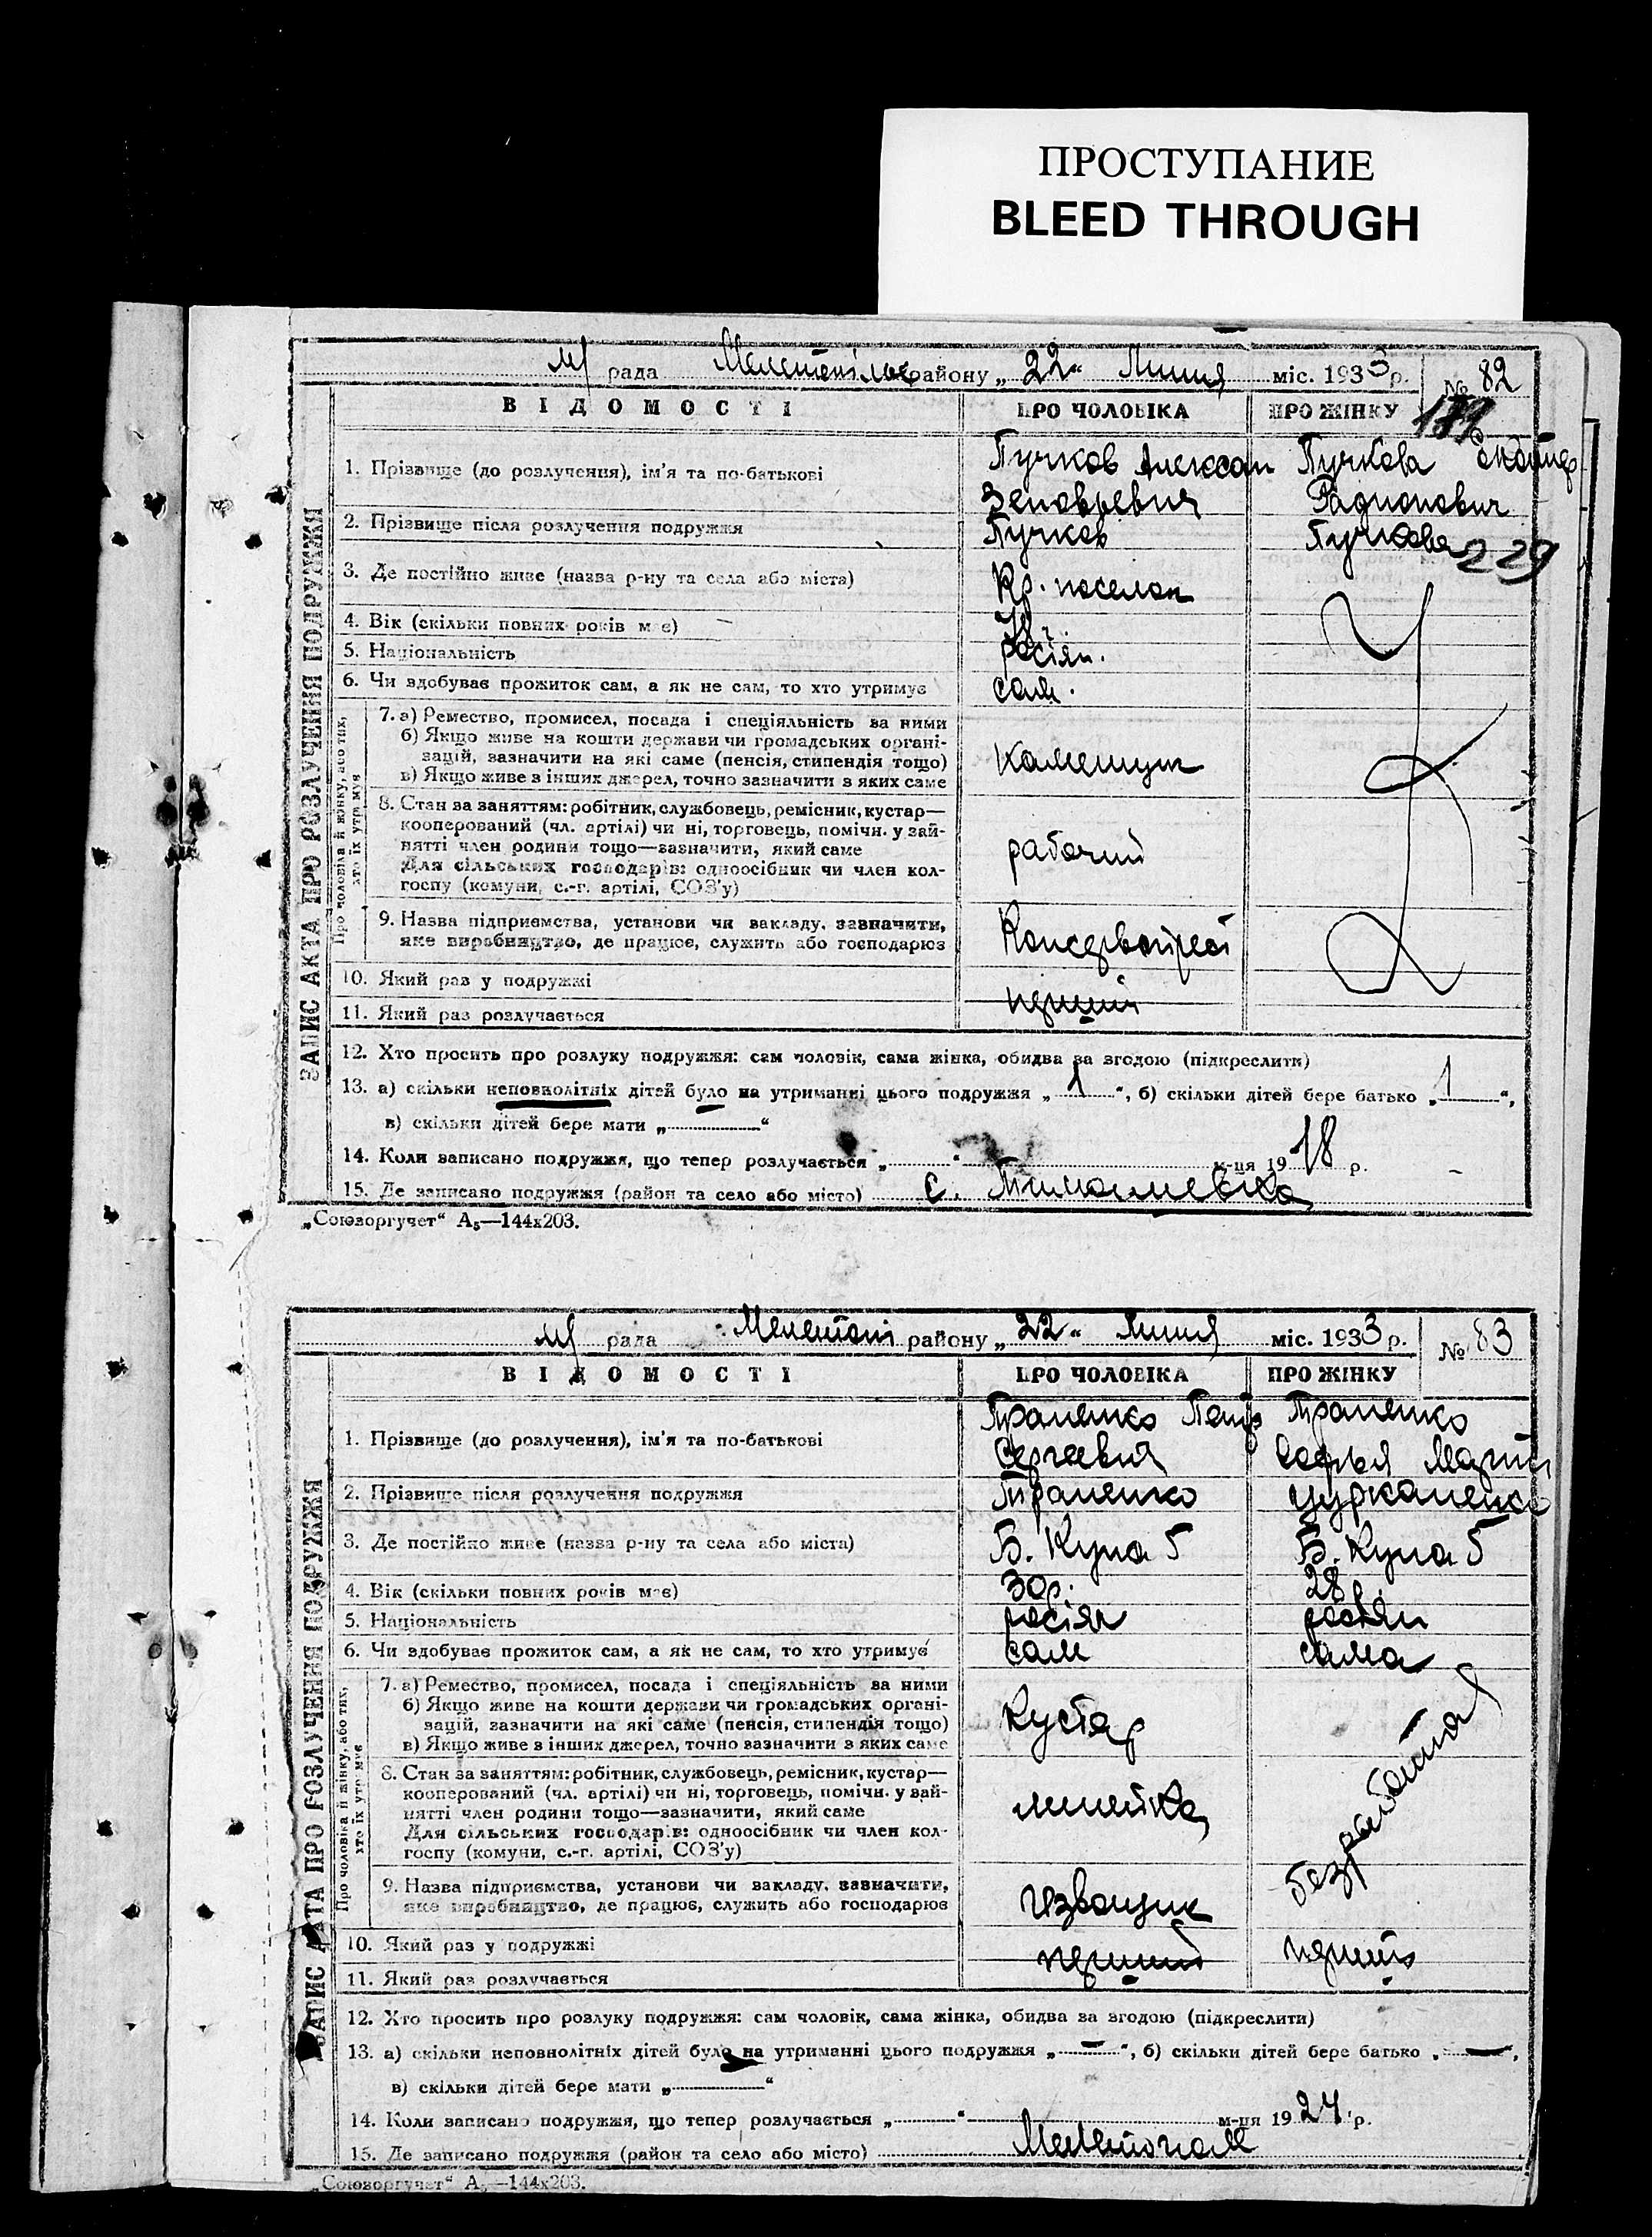 ПРОСТУПАНИЕ
BLEED THROUGH
м/ рада району „ 22 “ Липня міс. 1933 р. № 82
ВІДОМОСТІ ПРО ЧОЛОВІКА ПРО ЖІНКУ
ЗАПИС АКТА ПРО РОЗЛУЧЕННЯ ПОДРУЖЖЯ
1. Прізвище (до розлучення), ім'я та по-батькові
Пучков Александ Пучкова
Радионович
2. Прізвище після розлучення подружжя Пучков Пучкова 229
3. Де постійно живе (назва р-ну та села або міста) Кр. поселок
4. Вік (скільки повних років має)
5. Національність росіян.
6. Чи здобуває прожиток сам, а як не сам, то хто утримує сам.
Про чоловіка й жінку, або тих, хто їх утримує
7. а) Ремество, промисел, посада і спеціяльність за ними
б) Якщо живе на кошти держави чи громадських органі-
зацій, зазначити на які саме (пенсія, стипендія тощо)
в) Якщо живе з інших джерел, точно зазначити з яких саме
каменщик
8. Стан за заняттям: робітник, службовець, ремісник, кустар—
кооперований (чл. артілі) чи ні, торговець, помічн. у зай-
нятті член родини тощо—зазначити, який саме
рабочий
Для сільських господарів: одноосібник чи член кол-
госпу (комуни, с.-г. артілі, СОЗ'у)
9. Назва підприємства, установи чи закладу, зазначити,
яке виробництво, де працює, служить або господарює
Консервтрест
10. Який раз у подружжі
перший
11. Який раз розлучається
12. Хто просить про розлуку подружжя: сам чоловік, сама жінка, обидва за згодою (підкреслити)
13. а) скільки неповнолітніх дітей було на утриманні цього подружжя „ 1 “, б) скільки дітей бере батько „ 1 “,
в) скільки дітей бере мати „ “
14. Коли записано подружжя, що тепер розлучається „ “ м-ця 1918 р.
15. Де записано подружжя (район та село або місто) с. Тимошевка
„Союзоргучет“ А₅—144х203.
м/ рада Мелітопі району „ 22 “ Липня міс. 1933 р. № 83
ВІДОМОСТІ ПРО ЧОЛОВІКА ПРО ЖІНКУ
ЗАПИС АКТА ПРО РОЗЛУЧЕННЯ ПОДРУЖЖЯ
1. Прізвище (до розлучення), ім'я та по-батькові
Траненко Петр Траненко
Сергеевич Софья
2. Прізвище після розлучення подружжя Траненко Цурканенко
3. Де постійно живе (назва р-ну та села або міста) Б. Куна 5 Б. Куна 5
4. Вік (скільки повних років має) 30 р. 28 р.
5. Національність росіян росіян
6. Чи здобуває прожиток сам, а як не сам, то хто утримує сам сама
Про чоловіка й жінку, або тих, хто їх утримує
7. а) Ремество, промисел, посада і спеціяльність за ними
б) Якщо живе на кошти держави чи громадських органі-
зацій, зазначити на які саме (пенсія, стипендія тощо)
в) Якщо живе з інших джерел, точно зазначити з яких саме
Кустар
безработная
8. Стан за заняттям: робітник, службовець, ремісник, кустар—
кооперований (чл. артілі) чи ні, торговець, помічн. у зай-
нятті член родини тощо—зазначити, який саме
линейка
Для сільських господарів: одноосібник чи член кол-
госпу (комуни, с.-г. артілі, СОЗ'у)
9. Назва підприємства, установи чи закладу, зазначити,
яке виробництво, де працює, служить або господарює
Извощик
10. Який раз у подружжі
перший перший
11. Який раз розлучається
12. Хто просить про розлуку подружжя: сам чоловік, сама жінка, обидва за згодою (підкреслити)
13. а) скільки неповнолітніх дітей було на утриманні цього подружжя „ — “, б) скільки дітей бере батько „ — “,
в) скільки дітей бере мати „ “
14. Коли записано подружжя, що тепер розлучається „ “ м-ця 1924 р.
15. Де записано подружжя (район та село або місто)
„Союзоргучет“ А₅—144х203.